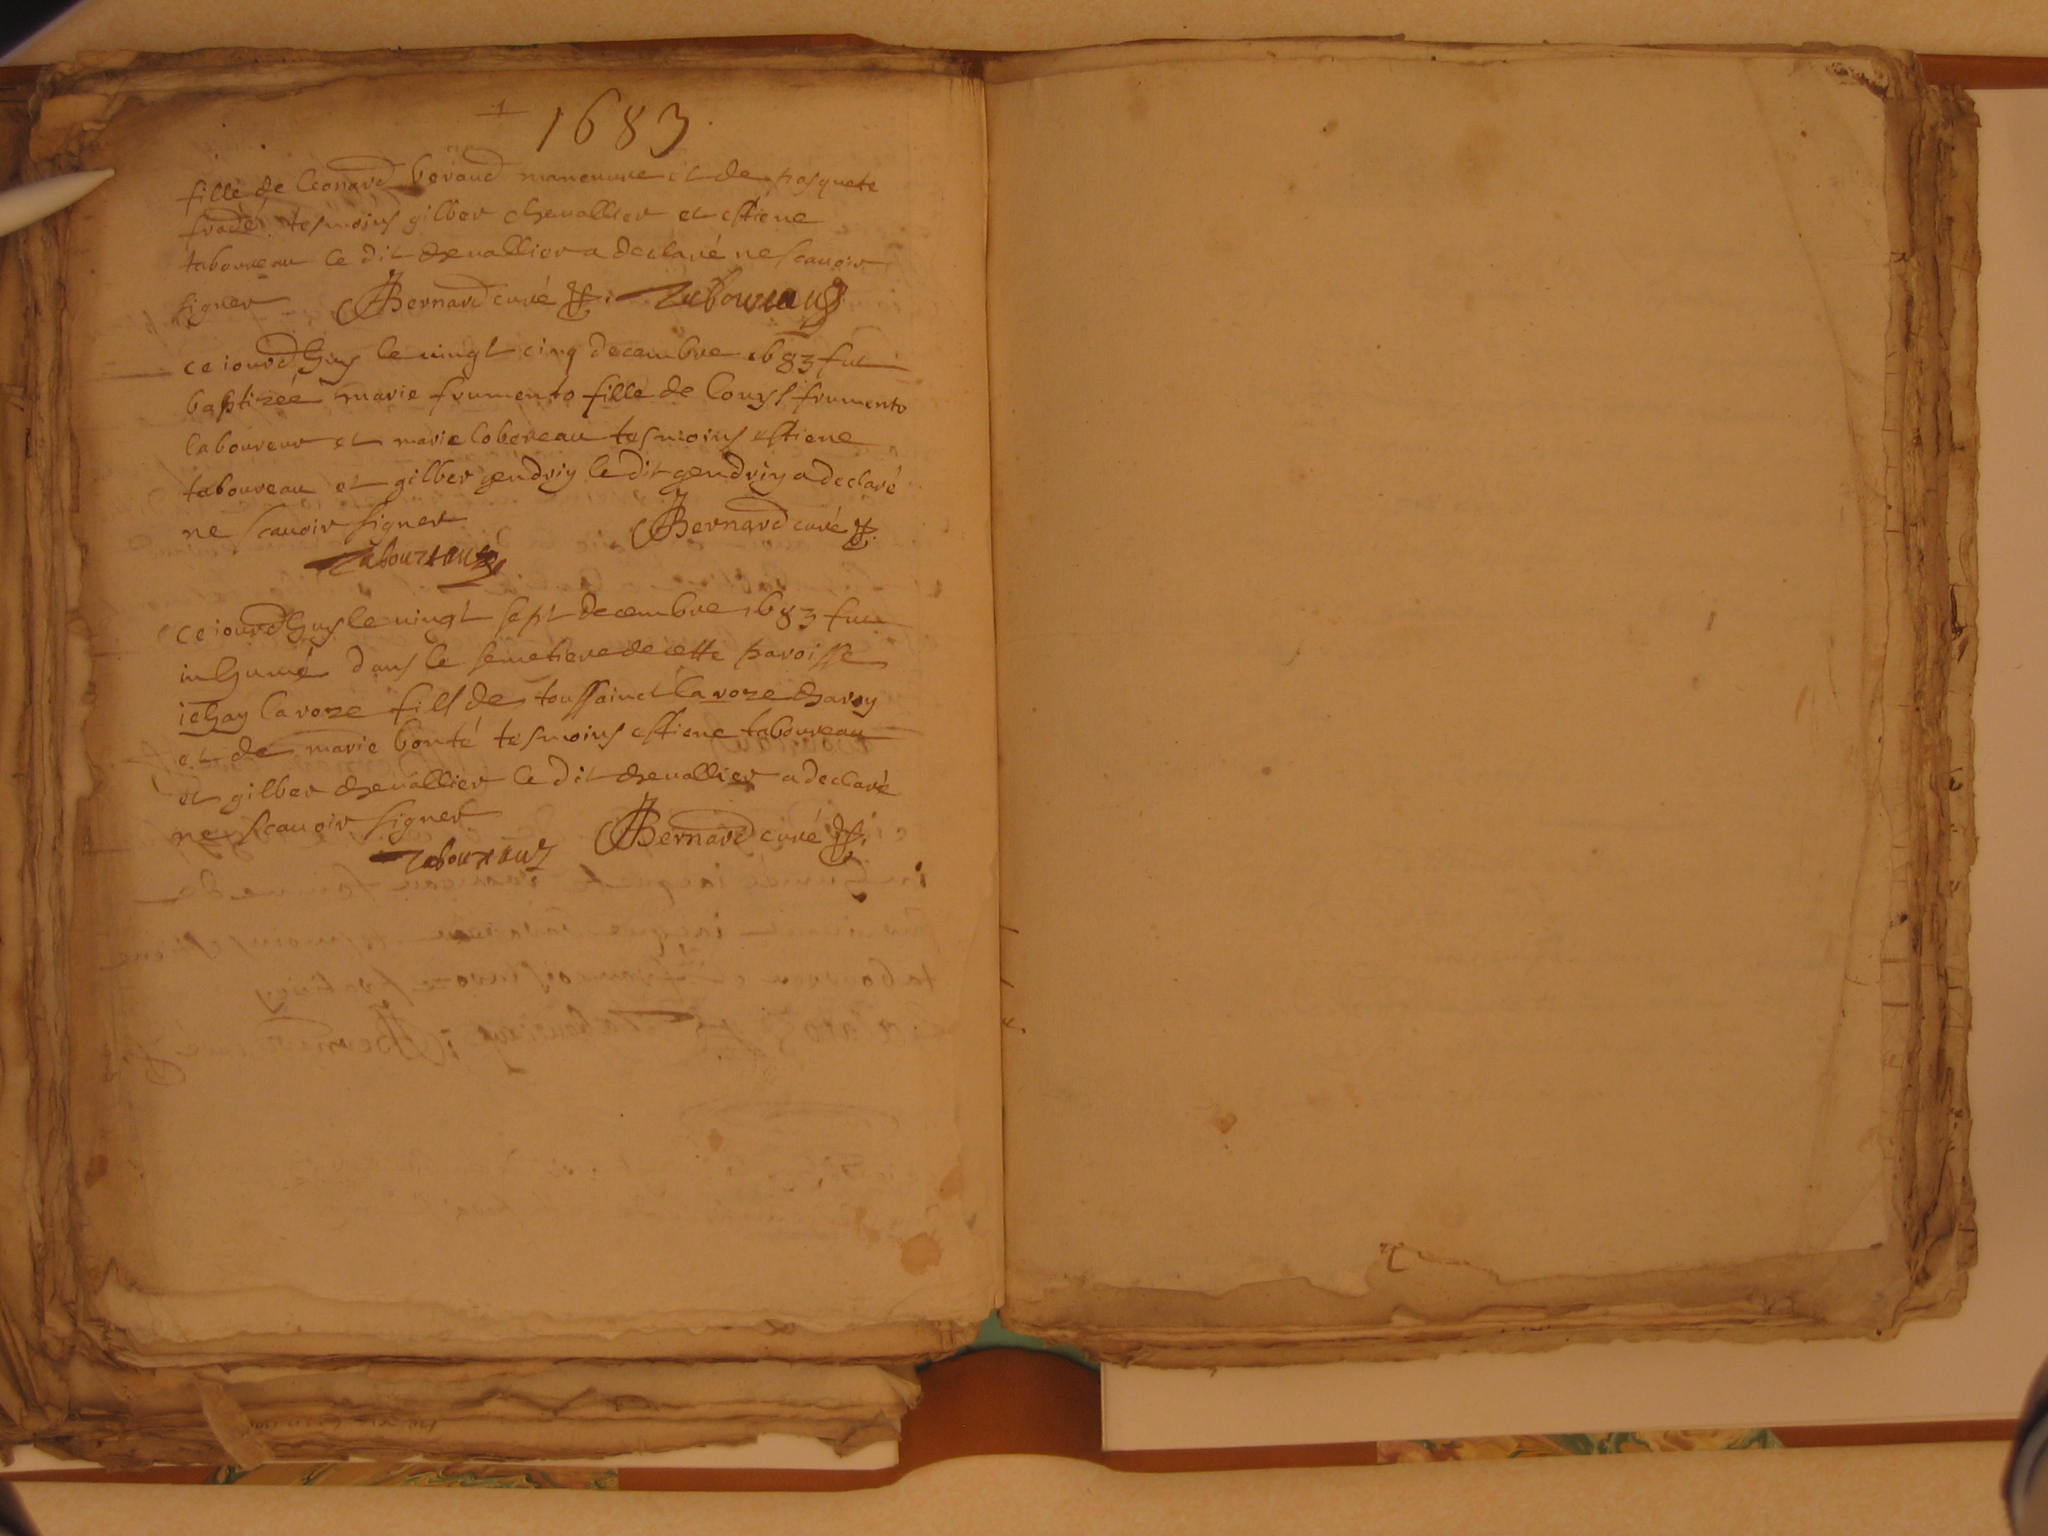 1683
fille de leonard beraud maneuure et de pasquete
fradé tesmoins gilber cheuallier et estiene
taboureau le dit cheuallier a declaré ne scauoir
signer Bernard curé Taboureau
ce iourdhuy le uingt cinq decembre 1683 fut
baptizée marie frumento fille de louys frumento
laboureur et marie lobereau tesmoins estiene
taboureau et gilber gendriy le dit gendriy a declaré
ne scauoir signer Bernard curé
Taboureau
ce iourdhuy le uingt sept decembre 1683 fut
inhumé dans le semetiere de cette paroisse
iehay laroze fils de toussainct laroze charoy
et de marie bonté tesmoins estiene taboureau
et gilber cheuallier le dit cheuallier a declaré
ne scauoir signer Bernard curé
Taboureau